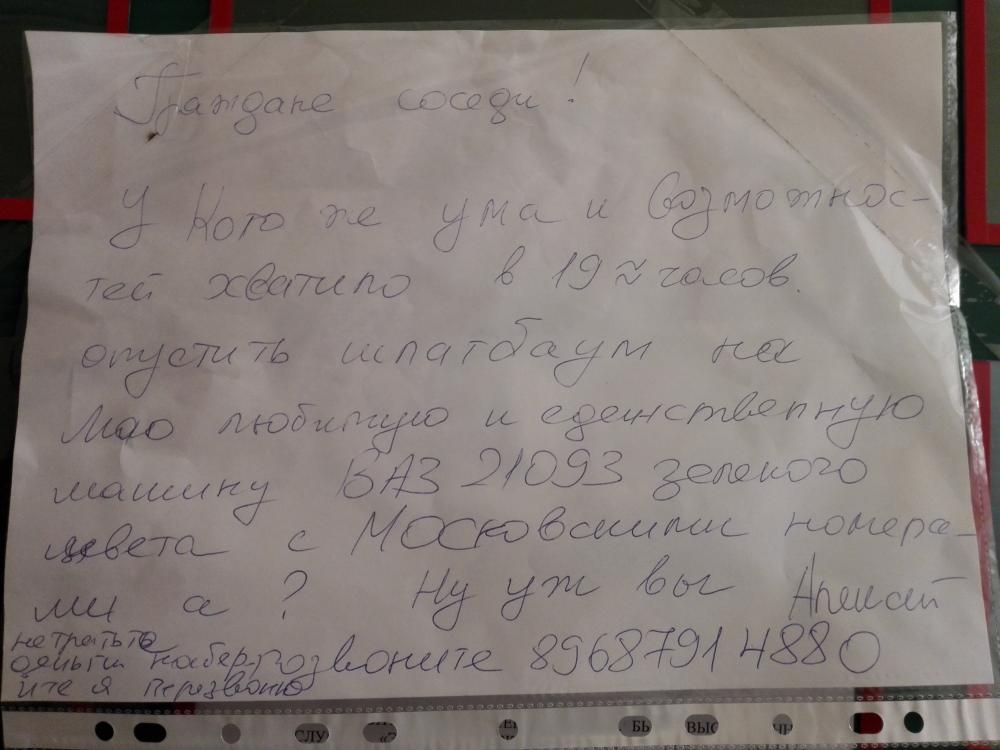 Граждане соседи!
У Кого же ума и возможнос-
тей хватило в 19 ~ часов.
опустить шлагбаум на
мою любимую и единственную
машину ВАЗ 21093 зеленого
цвета с Московскими номера-
ми а? Ну уж вы Алексей
не тратьте
деньги набер- позвоните 89687914880
ите я перезвоню
СЛУ
БЬ
ВЫС